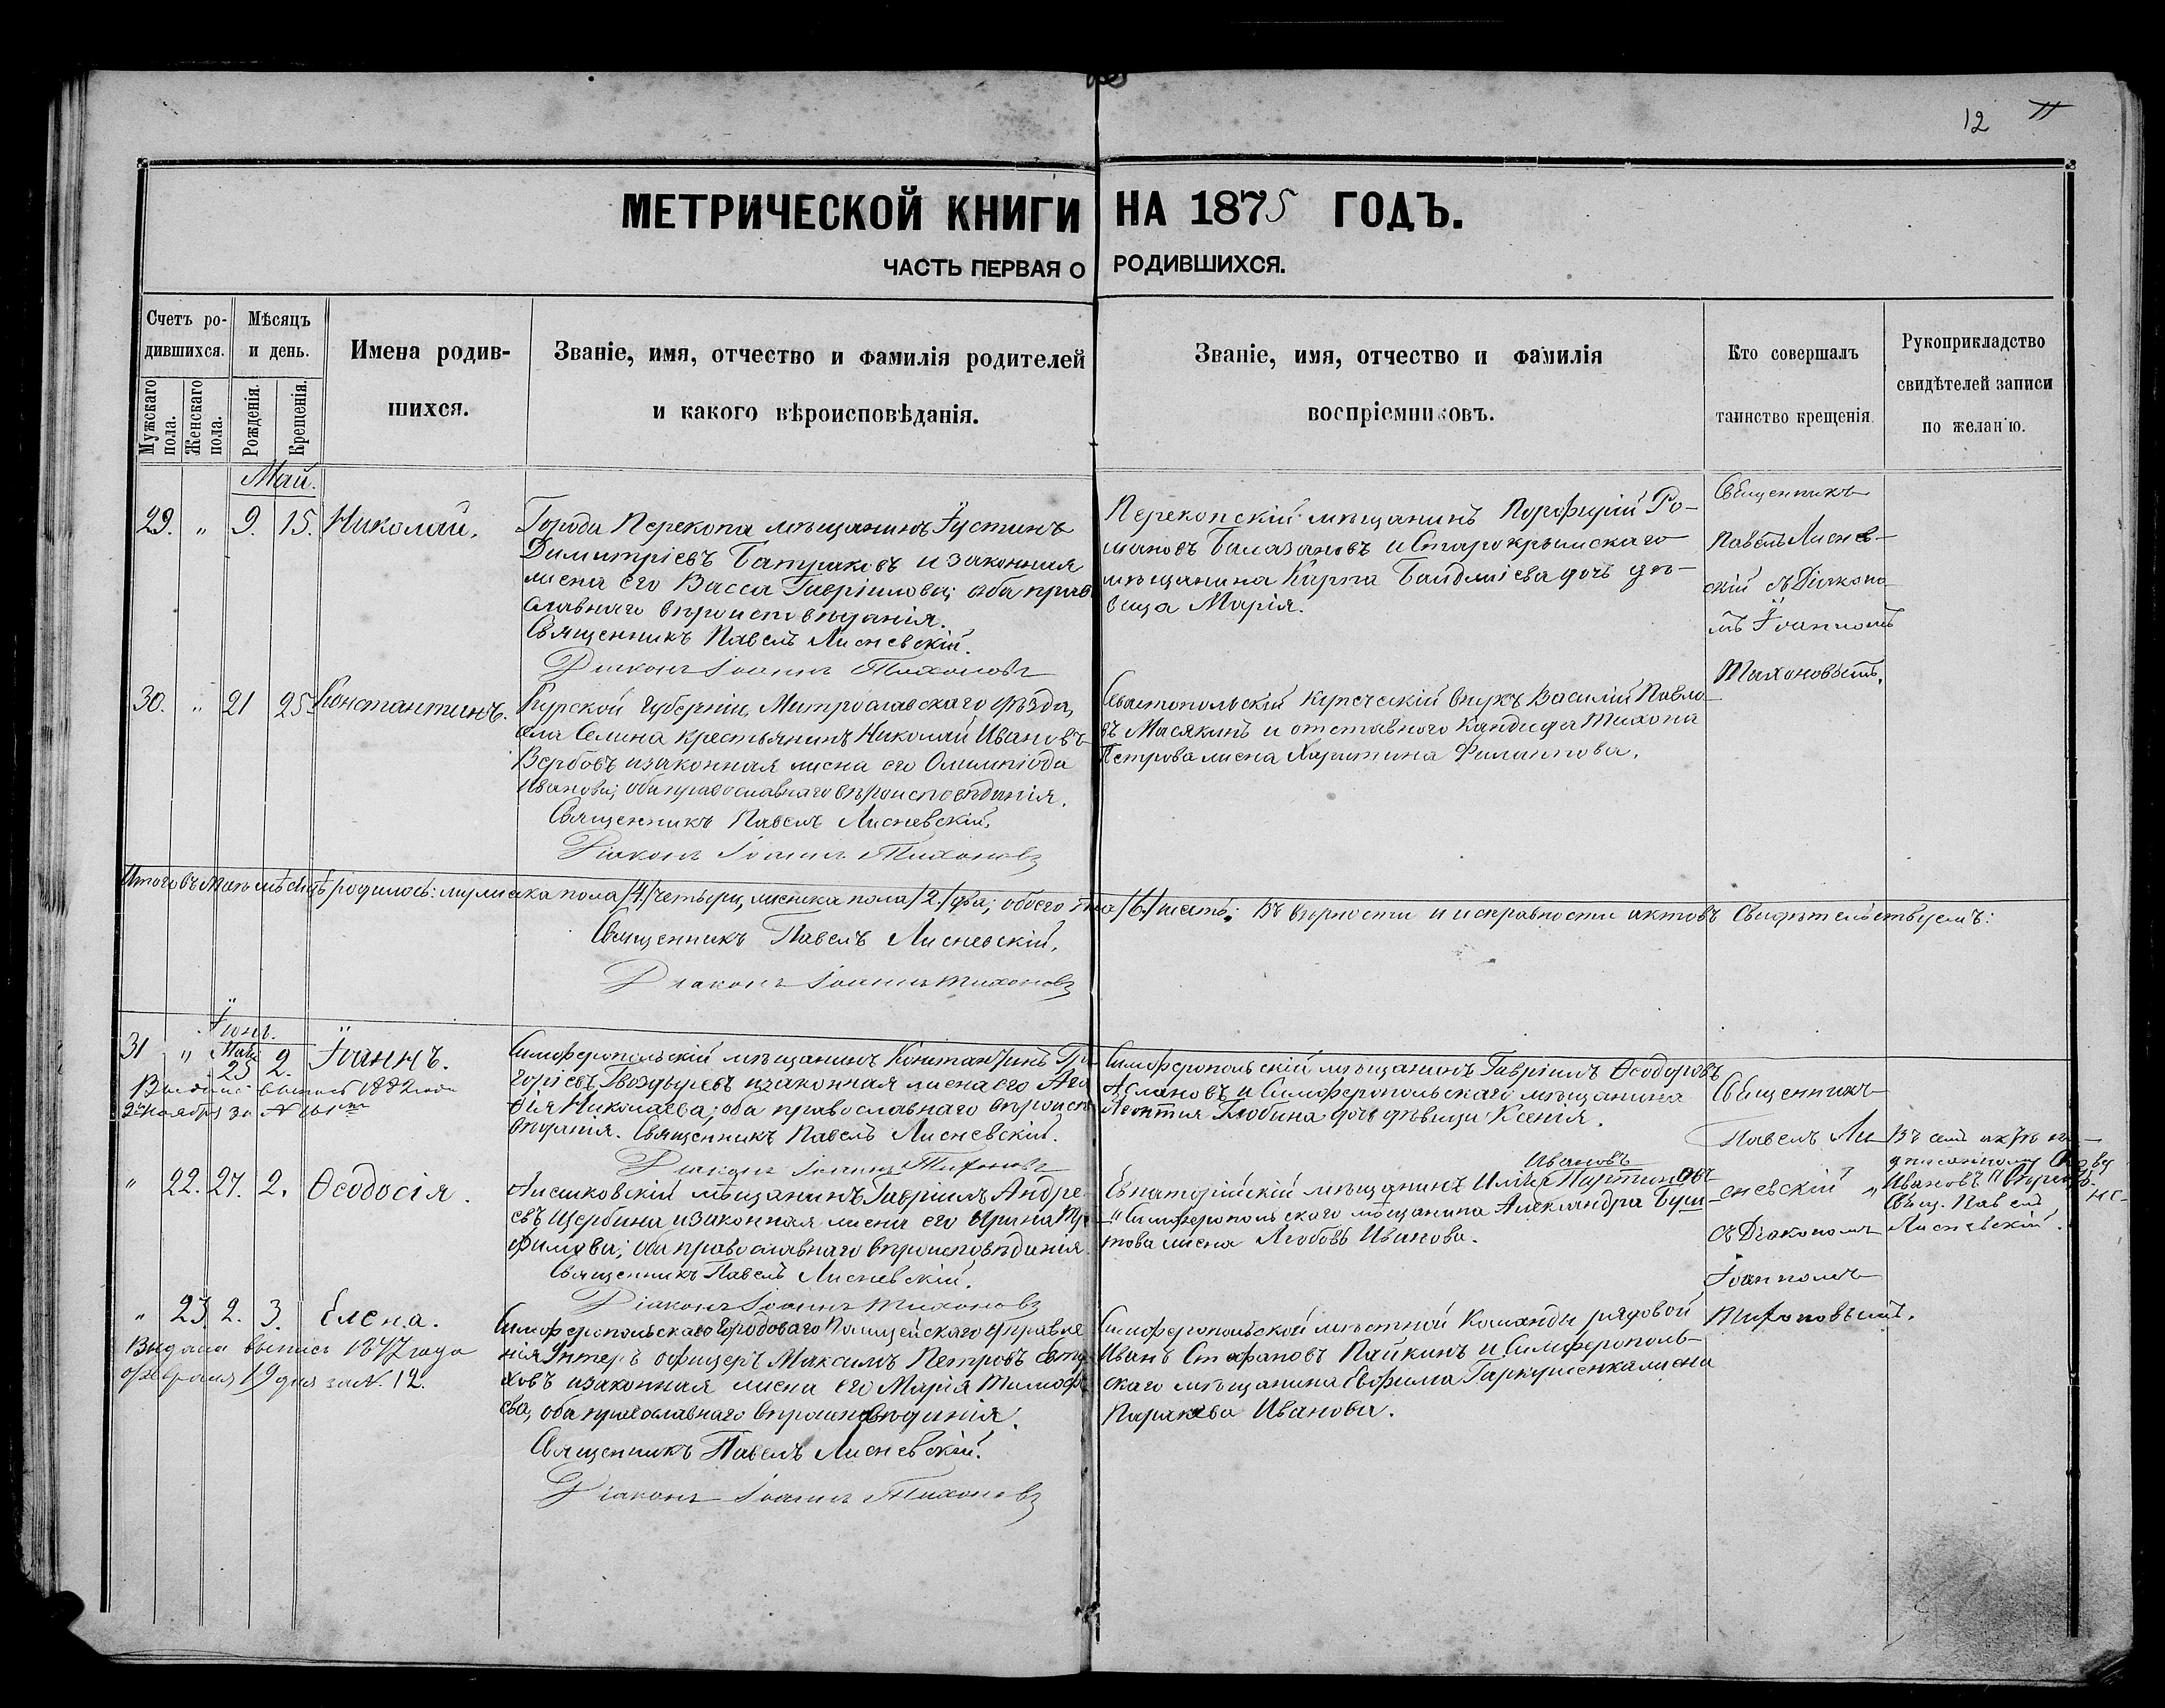 12
МЕТРИЧЕСКОЙ КНИГИ НА 1875 ГОДЪ.
ЧАСТЬ ПЕРВАЯ О РОДИВШИХСЯ.
Счетъ ро-
дившихся.
Мужскаго пола.
Женскаго пола.
Мѣсяцъ
и день.
Рожденія.
Крещенія.
Имена родив-
шихся.
Званіе, имя, отчество и фамилія родителей
и какого вѣроисповѣданія.
Званіе, имя, отчество и фамилія
воспріемниковъ.
Кто совершалъ
таинство крещенія
Рукоприкладство
свидѣтелей записи
по желанію.
Май.
29. „ 9. 15. Николай.
Города Перекопа мѣщанинъ Іустинъ
Димитріевъ Батраковъ и законная
жена его Васса Гавріилова; оба право
славнаго вѣроисповѣданія.
Священникъ Павелъ Лисневскій.
Діаконъ Іоаннъ Тихоновъ
Перекопскій мѣщанинъ Порфирій Ро-
мановъ Балазановъ и Старокрымскаго
мѣщанина Карпа дочь дѣ-
вица Марія.
Священникъ
Павелъ Лиснев-
скій съ Діакона-
мъ Іоанномъ
Тихоновымъ.
30. „ 21 25 Константинъ.
Курской губерніи, уѣзда,
села Селина крестьянинъ Николай Ивановъ
Вербовъ и законная жена его Олимпіода
Иванова; оба православнаго вѣроисповѣданія.
Священникъ Павелъ Лисневскій.
Діаконъ Іоаннъ Тихоновъ
Севастопольскій купеческій внукъ Василій Павло-
въ Масякинъ и отставного Тихона
Петрова жена Харитина Филиппова.
Итого въ Маѣ мѣсяцѣ родилось: мужеска пола /4./ четыри, женска пола /2./ два; обоего пола /6./ шесть; Въ вѣрности и исправности актовъ свидѣтельствуемъ:
Священникъ Павелъ Лисневскій.
Діаконъ Іоаннъ Тихоновъ
Іюнь.
31 „ Мая 25 2. Іоаннъ.
Выпись 1882 года
2 ноября за №
Симферопольскій мѣщанинъ Константинъ Гри
горіевъ Гвоздыревъ и законная жена его Ага
ѳія Николаева; оба православнаго вѣроиспо
вѣданія. Священникъ Павелъ Лисневскій.
Діаконъ Іоаннъ Тихоновъ
Симферопольскій мѣщанинъ Гавріилъ Ѳеодоровъ
Аслановъ и Симферопольскаго мѣщанина
Леонтія дочь дѣвица Ксенія.
Священникъ
Павелъ Ли-
сневскій
съ Діакономъ
Іоанномъ
Тихоновымъ.
„ 22. 27. 2. Ѳеодосія.
Алешковскій мѣщанинъ Гавріилъ Андре-
евъ Щербина и законная жена его Ирина Тру
фимова; оба православнаго вѣроисповѣданія.
Священникъ Павелъ Лисневскій.
Діаконъ Іоаннъ Тихоновъ
Ивановъ
Евпаторійскій мѣщанинъ Илья Мартиновъ
и Симферопольскаго мѣщанина Александра
това жена Любовь Иванова.
Въ семъ актѣ на-
писанному слову
Ивановъ
Свящ. Павелъ
Лисневскій.
„ 23. 2. 3. Елена.
Выдана выпись года
февраля 19 дня за №. 12.
Симферопольскаго Городоваго Полицейскаго Управле
нія Унтеръ офицеръ Максимъ Петровъ
ховъ и законная жена его Марія Тимофе
ева, оба православнаго вѣроисповѣданія.
Священникъ Павелъ Лисневскій.
Діаконъ Іоаннъ Тихоновъ
Симферопольской мѣстной Команды рядовой
Иванъ Стефановъ Пайкинъ и Симферополь-
скаго мѣщанина Евфима Гаркушенка жена
Параскева Иванова.